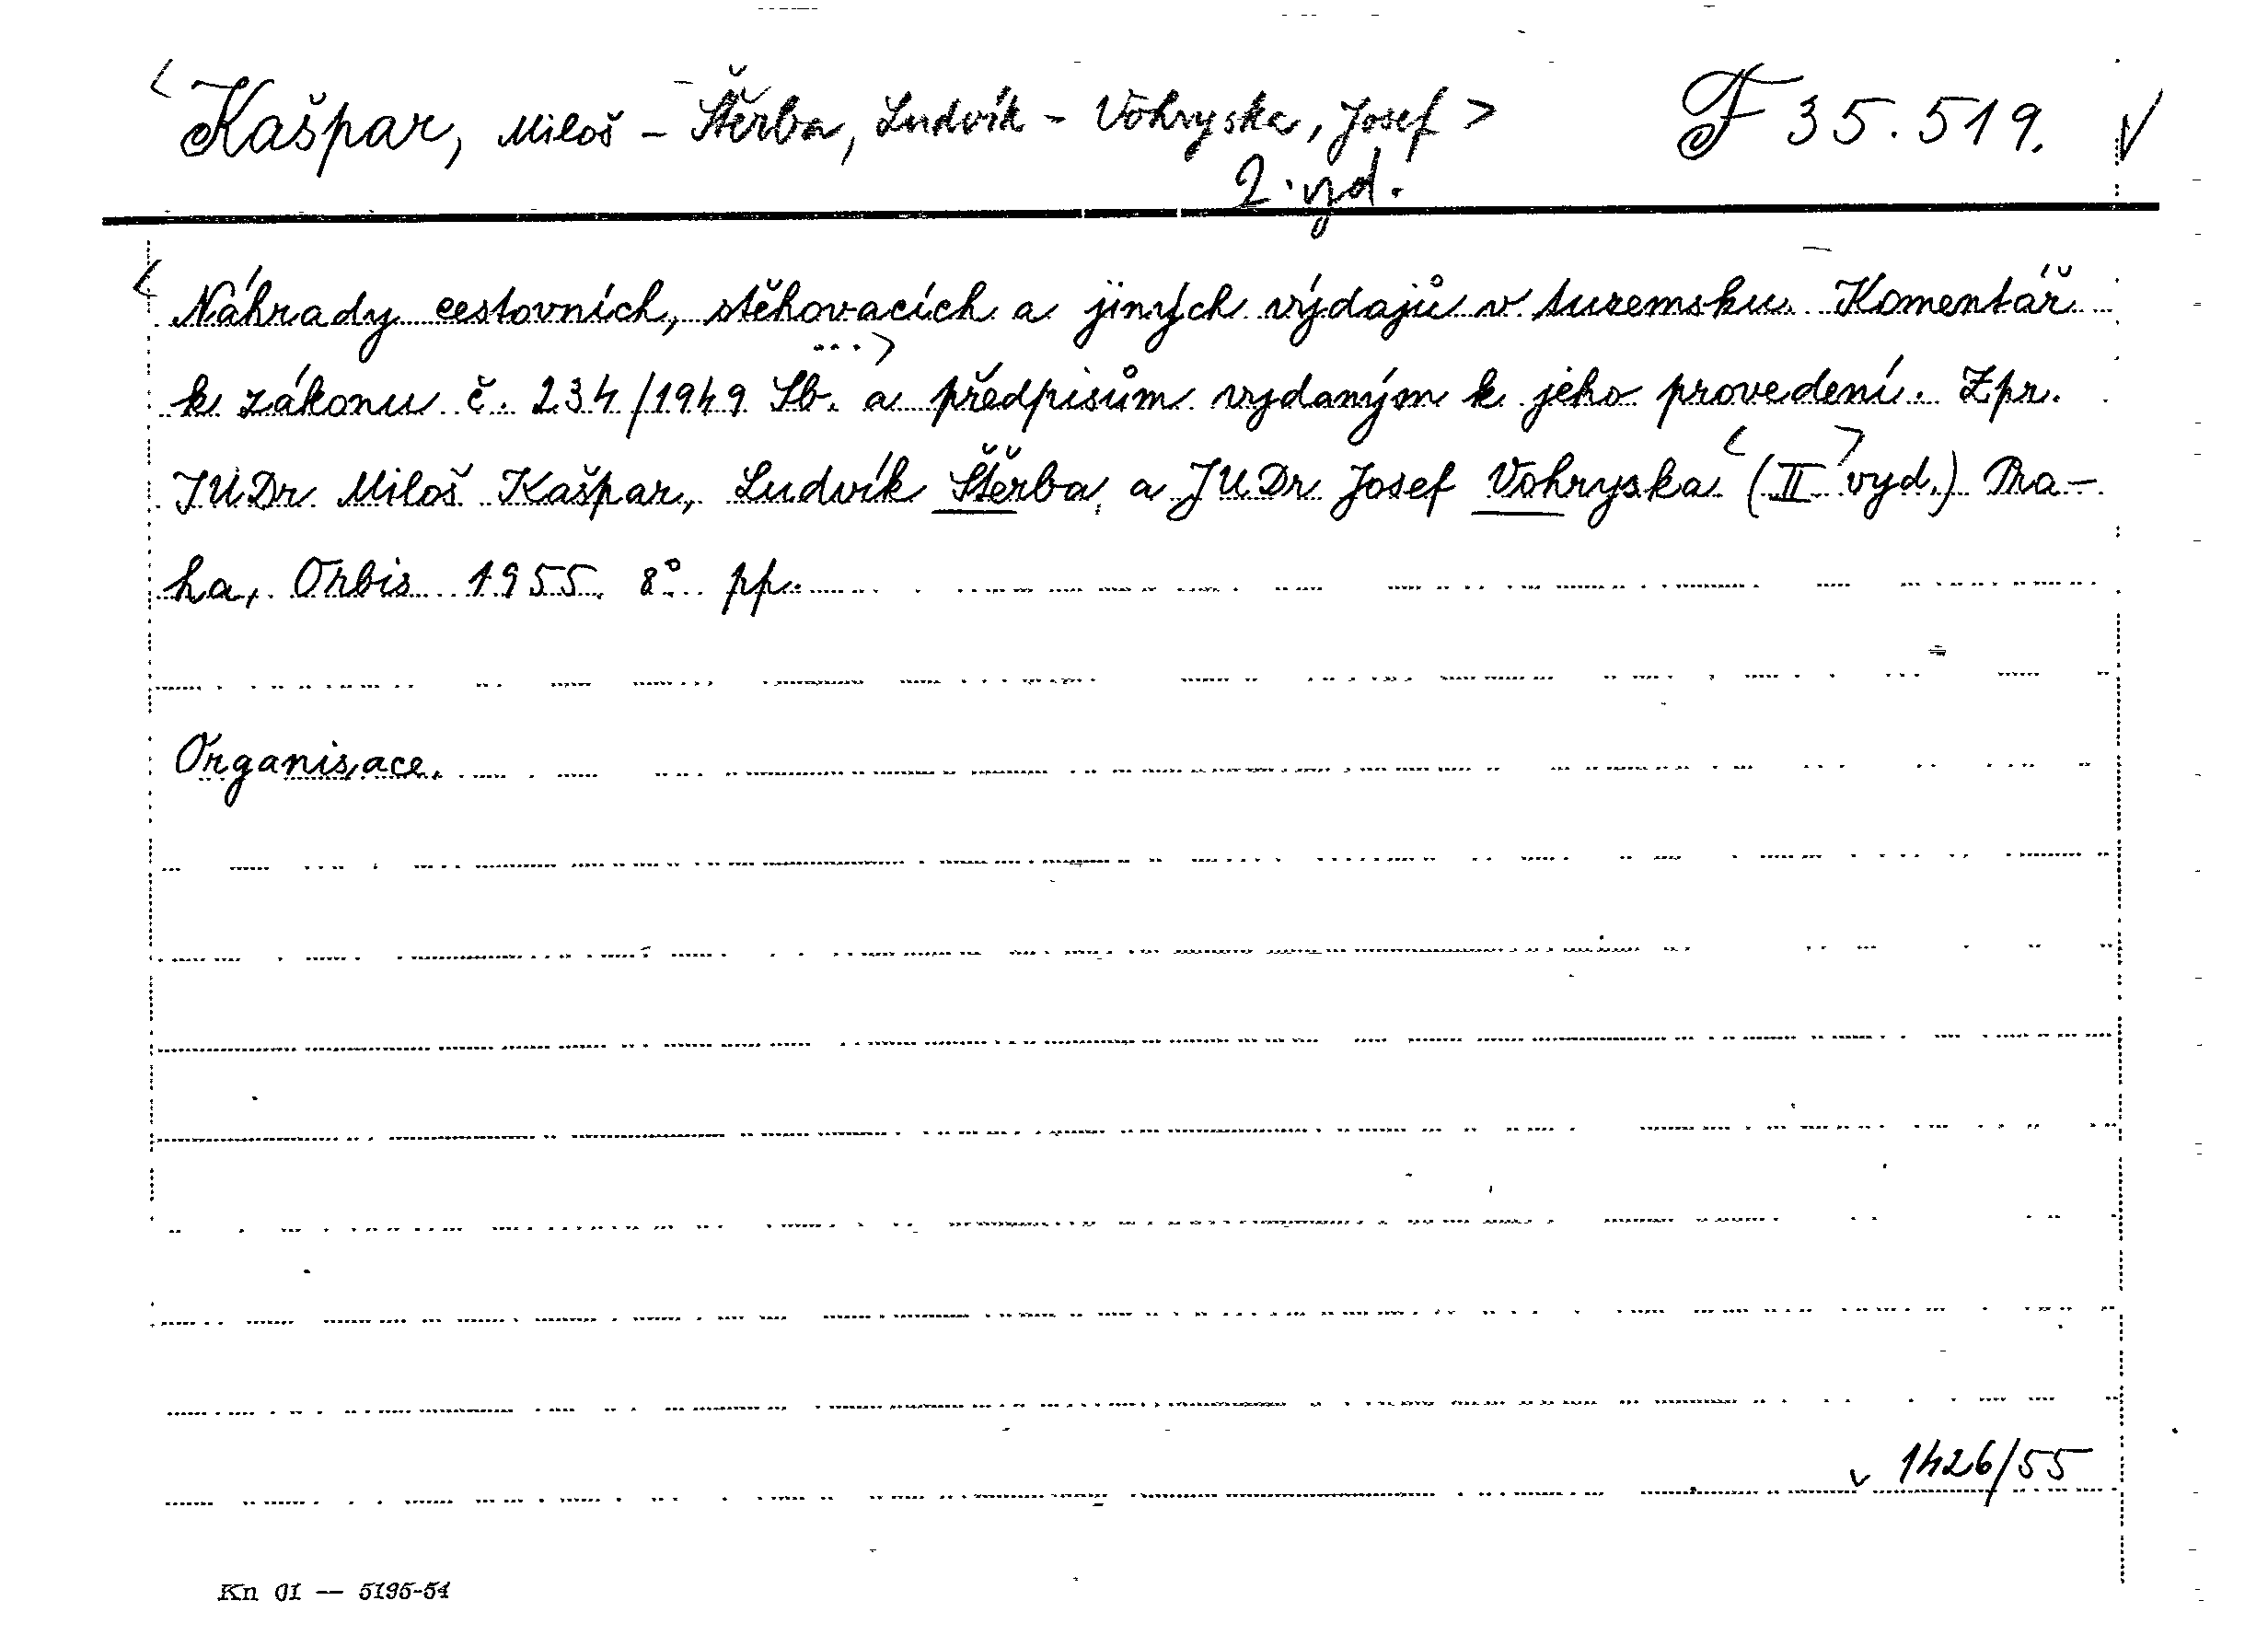 < Kašpar, Miloš - Štěrba, Ludvík - Vohryska, Josef > F 35.519. √
2. vyd.
< Náhrady cestovních, stěhovacích a jiných výdajů v tuzemsku. Komentář
...>
k zákonu č. 234/1949 Sb. a předpisům vydaným k jeho provedení. Zpr.
JUDr Miloš Kašpar, Ludvík Štěrba a JUDr Josef Vohryska <(II> vyd.) Pra-
ha, Orbis 1955. 8° pp.
Organisace.
v 1426/55
Kn 01 — 5195-54